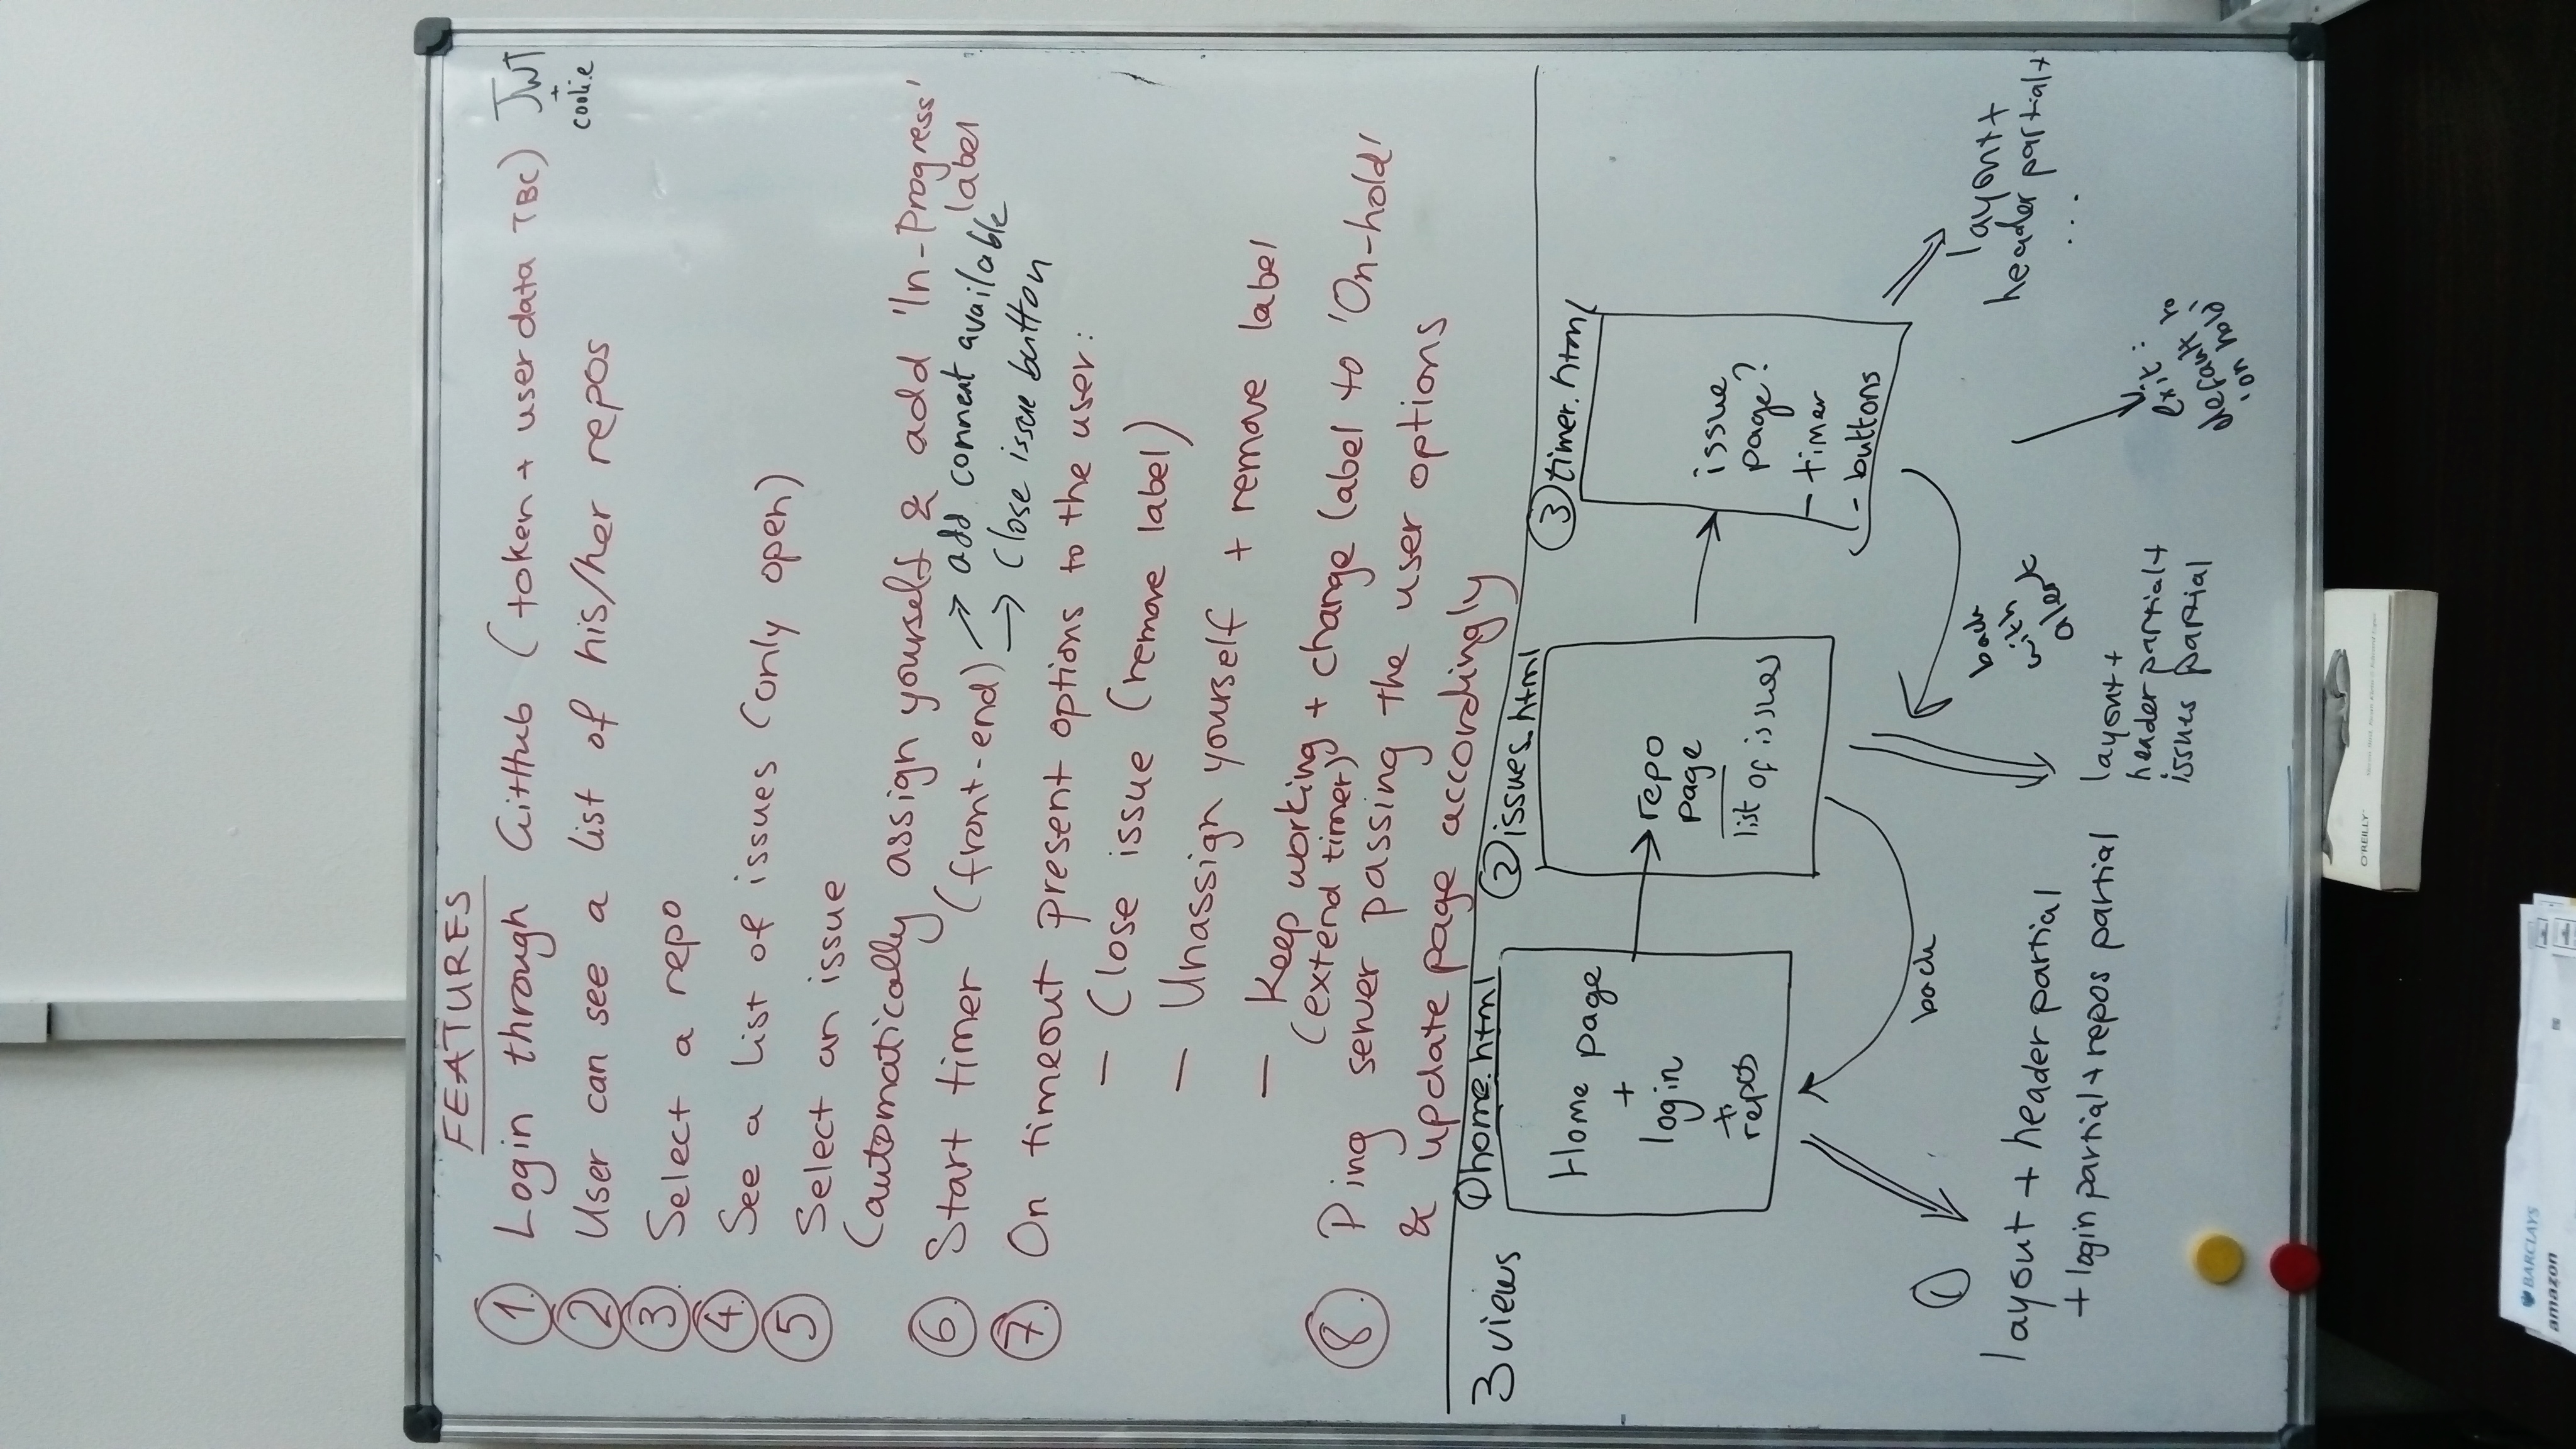 FEATURES
1. Login through GitHub (token + user data TBC) JWT
+
cookie
2 User can see a list of his/her repos
3. Select a repo
4. See a list of issues (only open)
5 Select an issue
(automatically assign yourself & add 'In-Progress'
label
6. Start timer (front-end) → add comment available
→ Close issue button
7. On timeout present options to the user:
– Close issue (remove label)
– Unassign yourself + remove label
– Keep working + change label to 'On-hold'
(extend timer)
8. Ping server passing the user options
& update page accordingly
3 views
1 home.html
Home page
+
login
+
repos
2 issues.html
repo
page
list of issues
3 timer.html
issue
page?
- timer
- buttons
back
back
with
alert
1
layout + header partial
+ login partial + repos partial
layout +
header partial +
issues partial
layout +
header partial +
...
exit:
default to
'on hold'
O'REILLY
BARCLAYS
amazon